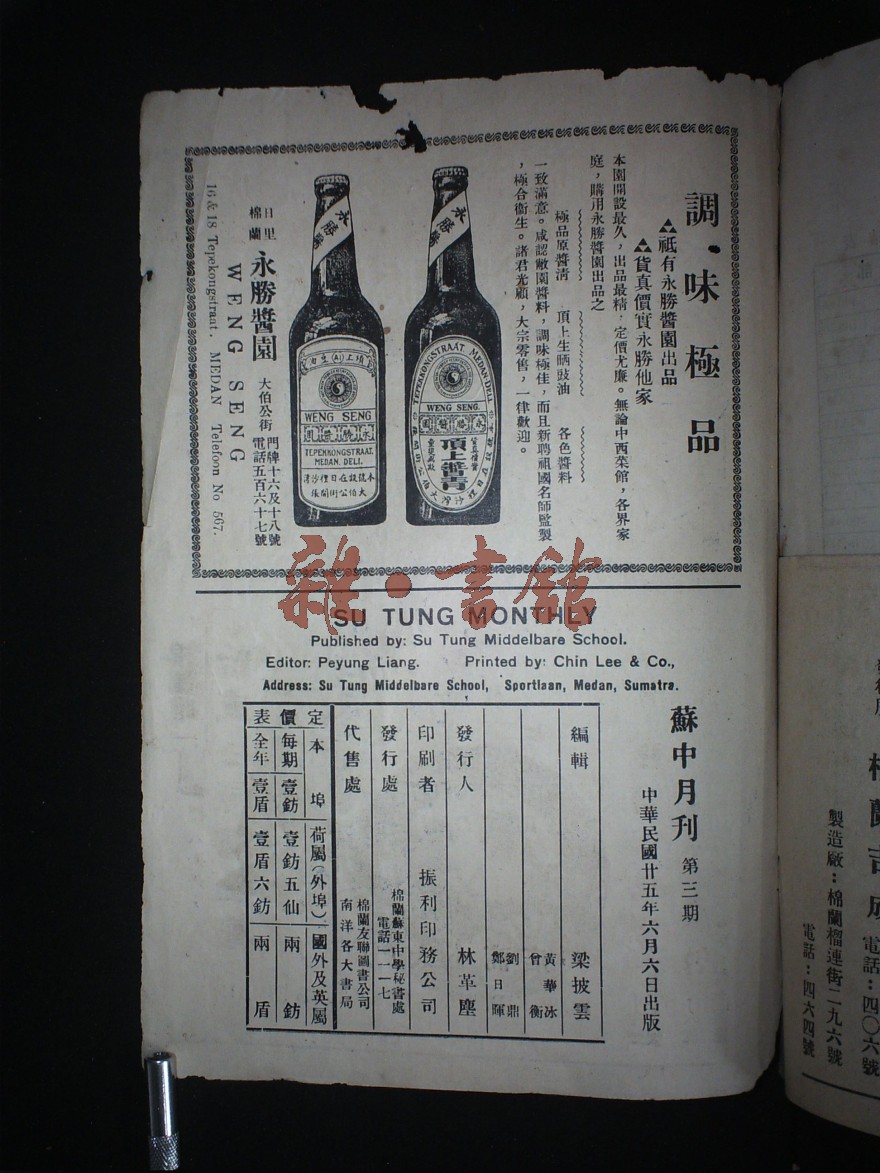 調味極品
▲▲祗有永勝醬園出品
▲▲貨真價實永勝他家
本園開設最久，出品最精，定價尤廉。無論中西菜館，各界家
庭，購用永勝醬園出品之
極品原醬清　頂上生晒豉油　各色醬料
一致滿意。咸認敝園醬料，調味極佳，而且新聘祖國名師監製
，極合衞生。諸君光顧，大宗零售，一律歡迎。
永勝醬
TEPEKONGSTRAAT MEDAN-DELI
WENG SENG.
頂上醬青
永勝醬
WENG SENG
TEPEKKONGSTRAAT.
MEDAN, DELI.
本號設在日裡沙湾
大伯公街開張
日里
棉蘭
永勝醬園
大伯公街
門牌十六及十八號
電話五百六十七號
WENG SENG
16 & 18 Tepekongstraat. MEDAN Telefoon No 567.
雜·書館
SU TUNG MONTHLY
Published by: Su Tung Middelbare School.
Editor: Peyung Liang. Printed by: Chin Lee & Co.,
Address: Su Tung Middelbare School, Sportlaan, Medan, Sumatra.
蘇中月刊 第三期
中華民國廿五年六月六日出版
編輯 梁披雲
黃華冰
曾衡
劉鼎
鄭日暉
發行人 林革塵
印刷者 振利印務公司
發行處 棉蘭蘇東中學秘書處
電話一一一七
代售處 棉蘭友聯圖書公司
南洋各大書局
定價表
本埠 荷屬(外埠) 國外及英屬
每期 壹鈁 壹鈁五仙 兩鈁
全年 壹盾 壹盾六鈁 兩盾
電話：四〇六號
製造廠：棉蘭榴連街二九六號
電話：四六四號